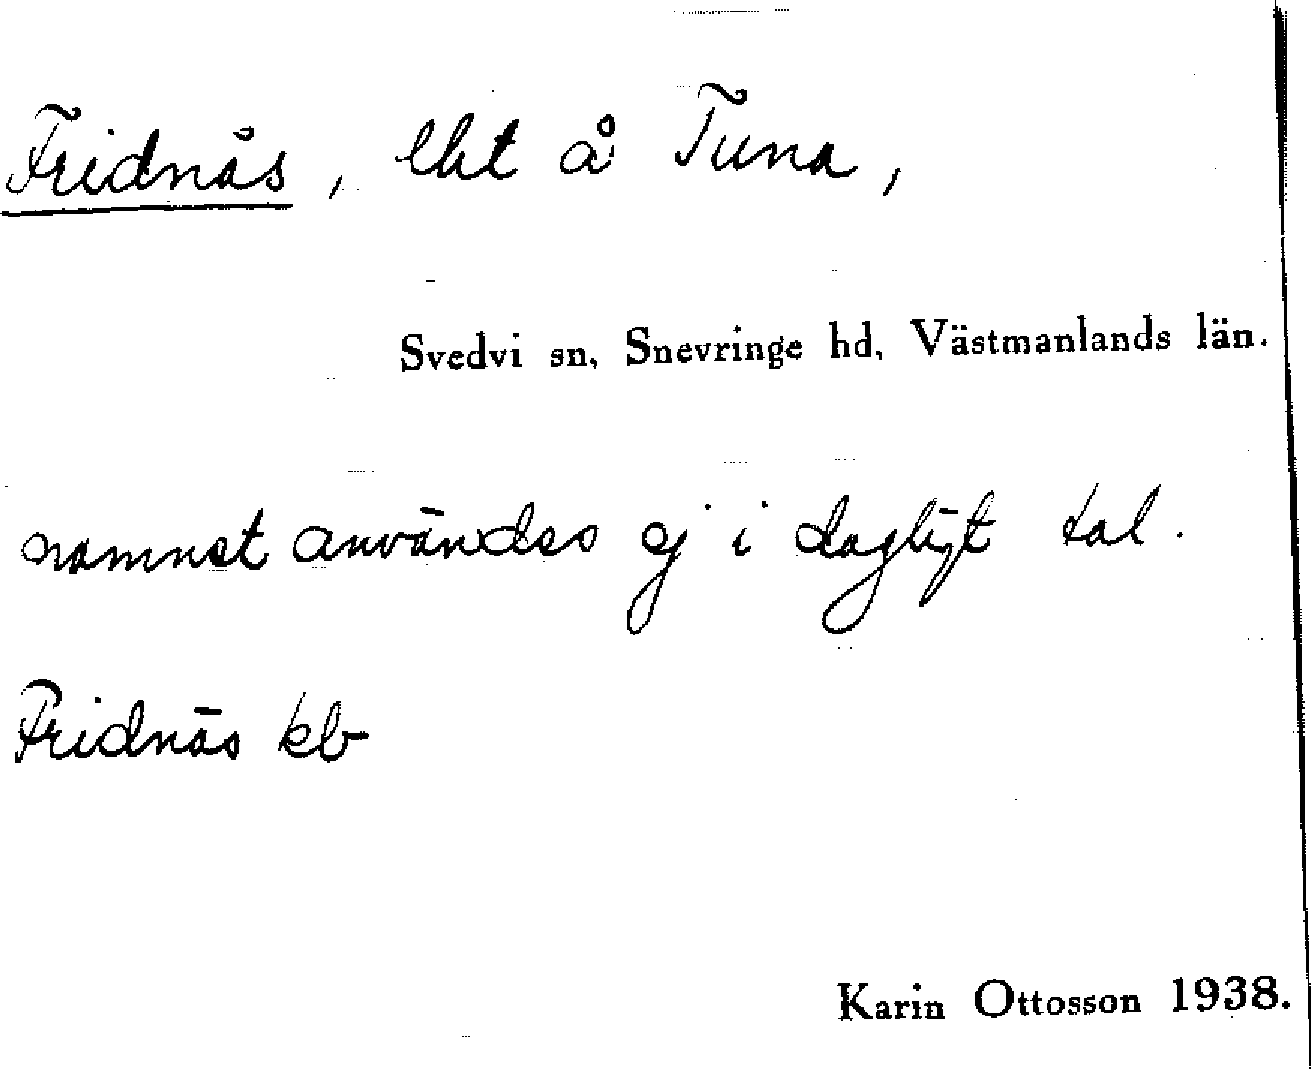 Fridnäs, lht å Tuna,
Svedvi sn, Snevringe hd, Västmanlands län.
namnet användes ej i dagligt tal.
Fridnäs kb
Karin Ottosson 1938.